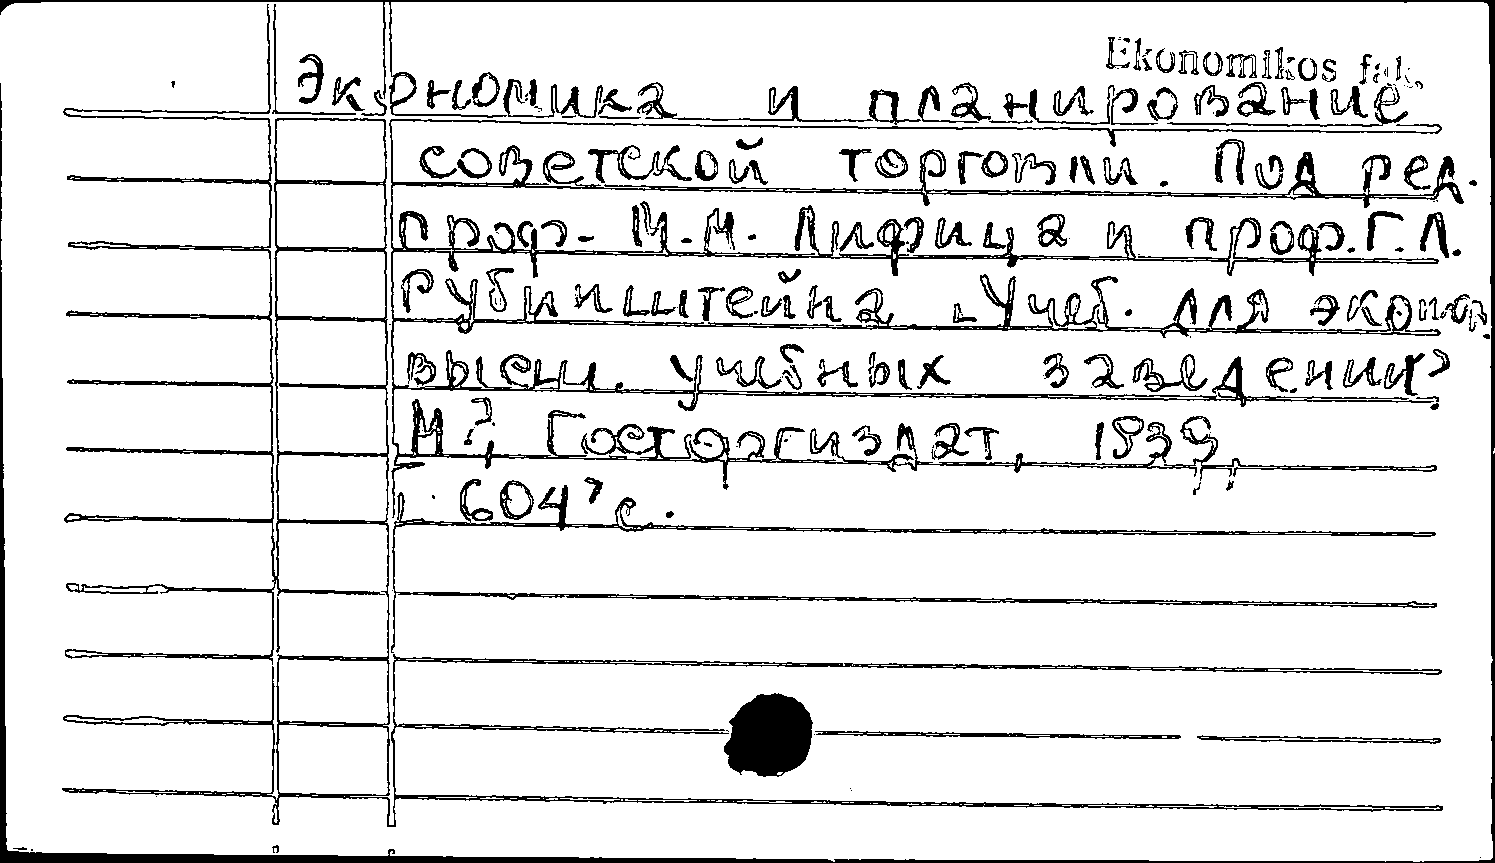 Ekonomikos fak.
Экономика и планирование
советской торговли. Под ред.
проф. М.М. Лифица и проф. Г.Л.
Рубинштейна. Учеб. для эконом.
высш. учебных заведений
М., Госторгиздат, 1939,
604 с.